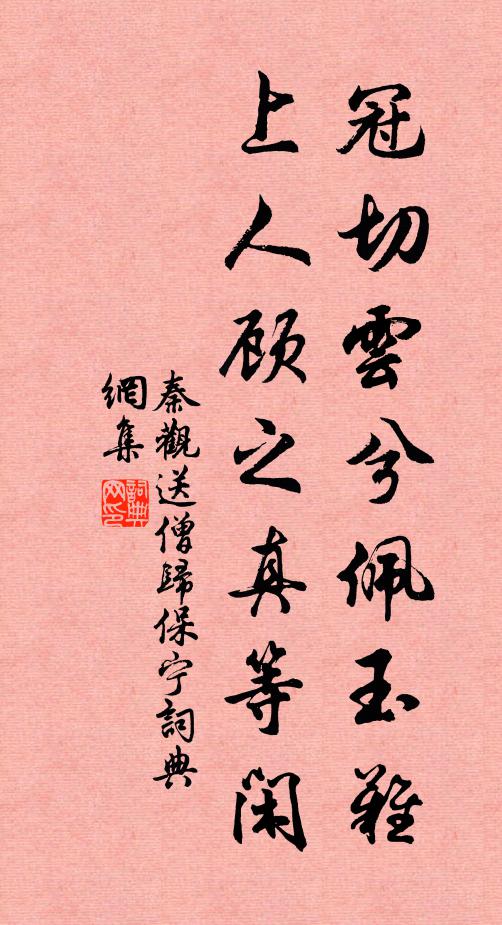 冠切雲兮佩玉難
上人顾之真等闲
秦觀送僧歸保宁詞典
網集
詞典
网印